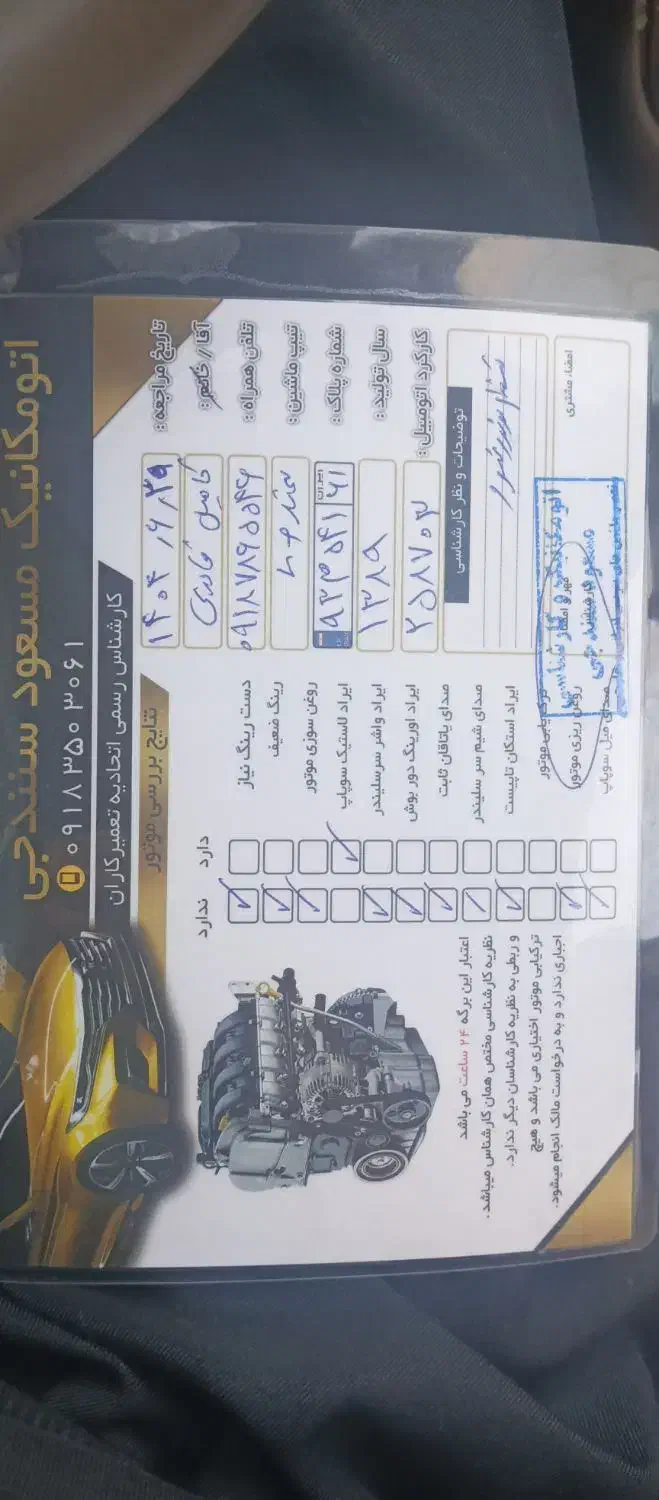 اتومکانیک مسعود سنندجی
۰۹۱۸ ۳۵۰ ۳۰۶۱
کارشناس رسمی اتحادیه تعمیرکاران
تاریخ مراجعه: ۱۴۰۴/۶/۲۹
آقا/خانم: کامیل قادری
تلفن همراه: ۰۹۱۸۷۸۹۵۵۴۶
تیپ ماشین: سمند
شماره پلاک: ایران ۶۱
سال تولید: ۱۳۸۹
کارکرد اتومبیل: ۲۵۸۷۰۳
توضیحات و نظر کارشناسی
امضاء مشتری
مهر و امضاء کارشناس
نتایج بررسی موتور
دارد
ندارد
دست رینگ نیاز
رینگ ضعیف
روغن سوزی موتور
ایراد لاستیک سوپاپ
ایراد واشر سرسلیندر
ایراد اورینگ دور بوش
صدای یاتاقان ثابت
صدای شیم سر سلیندر
ایراد استکان تایپیت
ترکیابی موتور
روغن ریزی موتور
صدای میل سوپاپ
اعتبار این برگه ۲۴ ساعت می باشد
نظریه کارشناسی مختص همان کارشناس میباشد.
و ربطی به نظریه کارشناسان دیگر ندارد.
ترکیابی موتور اختیاری می باشد و هیچ
اجباری ندارد و به درخواست مالک انجام میشود.